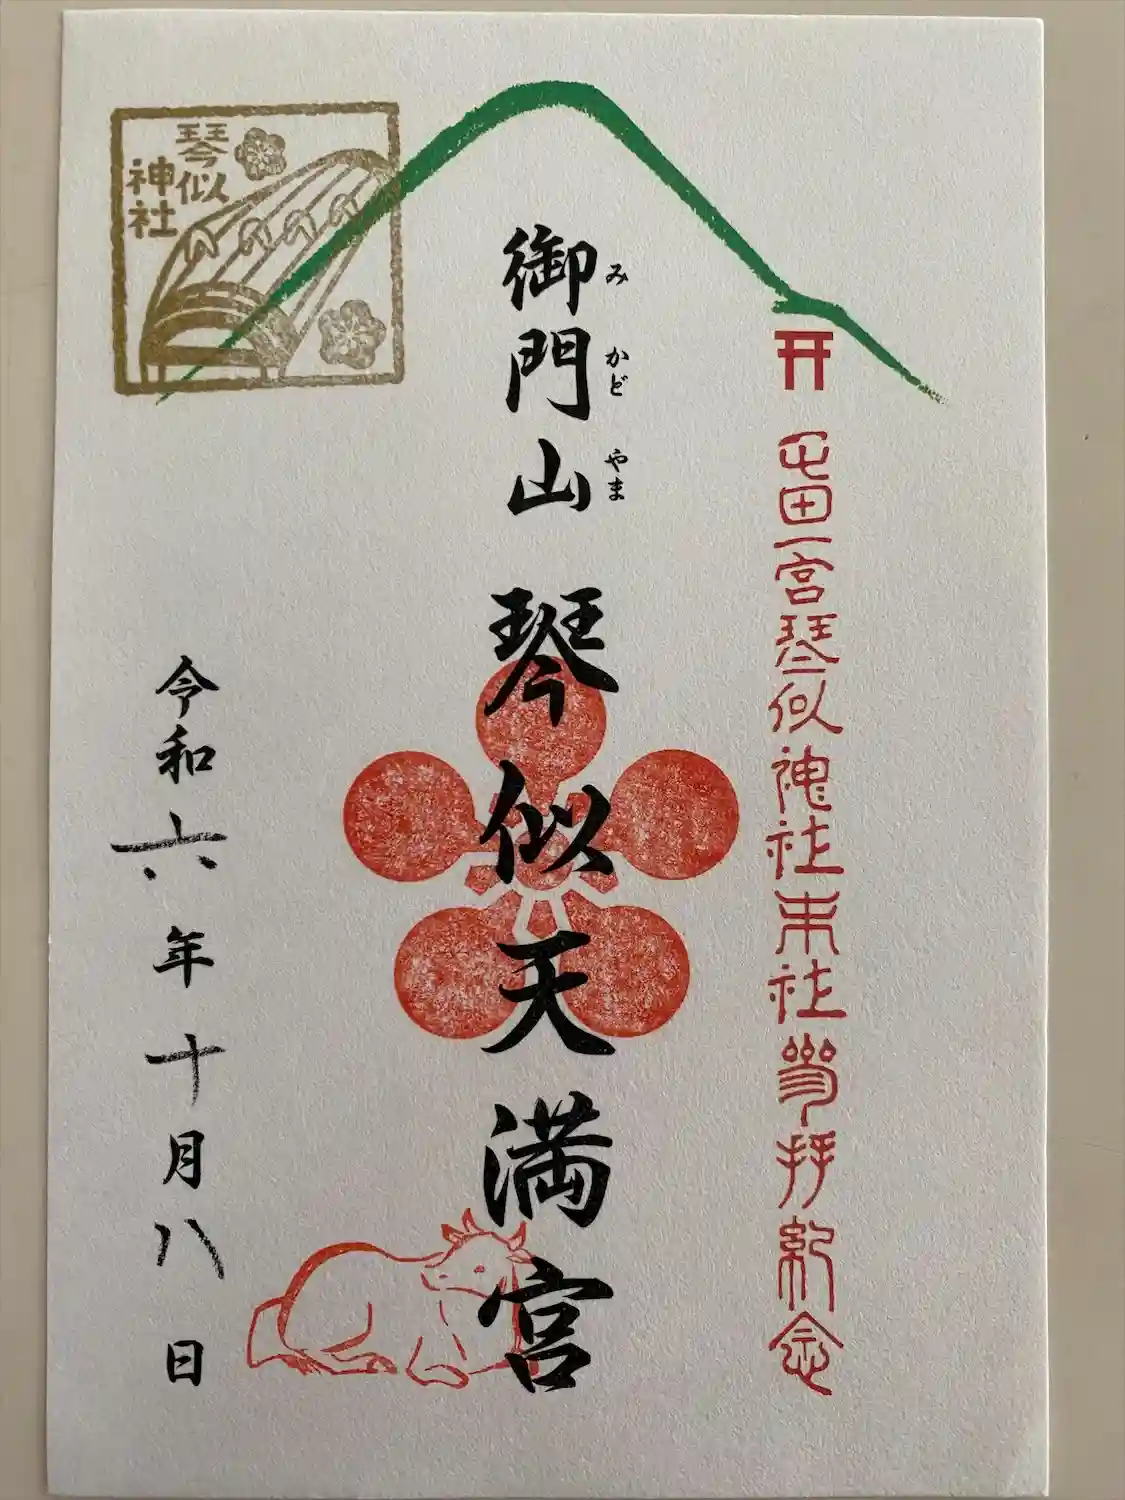 屯田一宮琴似神社末社参拝紀念
みかどやま
御門山 琴似天満宮
琴似
神社
令和六年十月八日